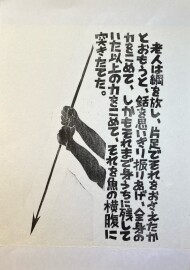 老人は綱を放し、片足でそれをおさえたか
とおもうと、銛を思いきり振りあげ、全身の
力をこめて、しかもそれまで身うちに残して
いた以上の力をこめて、それを魚の横腹に
突きたてた。